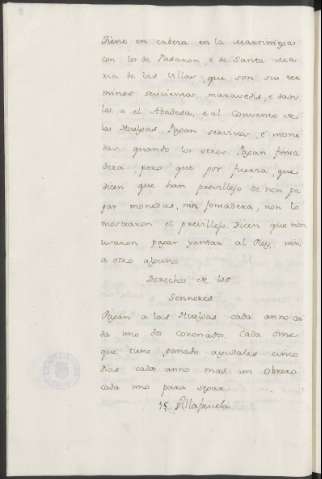 Tiene en cabeza en la Martiniega
con los de Padaron, e de Santa Ma
ria de las Ullas, que son sus ter
minos seycientos, maravedis, e dan
los a el Abadesa, e al Convento de
las Huelgas, Pagan servicios, e mone
das quando los otros. Pagan fonsa
dera pero que por fuerza, que
dicen que han previllejo de non pa
gar monedas, nin fonsadera, non lo
mostraron el previllejo. Dicen que non
usaron pagar yantar al Rey, nin
a otro alguno
Derechos de los
Sennores
Pagan a las Huelgas cada anno ca
da uno dos coronados. Cada ome
que tiene ganado ayudales cinco
dias cada anno mas un obrero
cada uno para segar